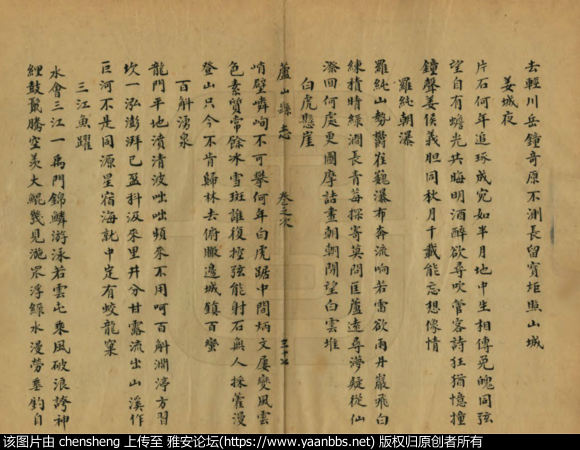 去輕川岳鐘奇原不測長留寶炬照山城
姜城夜
片石何年追琢成宛如半月地中生相傳兔魄同弦
望自有蟾光共晦明酒醉欲尋吹管客詩狂猶憶撞
鐘聲姜侯義胆同秋月千載能忘想像情
羅純朝瀑
羅純山勢欝崔巍瀑布奔流响若雷欲雨丹巖飛白
練積晴綠澗長青莓探奇莫問匡蘆遠尋渺疑從仙
源回何處更圖摩詰畫朝朝閒望白雲堆
白虎懸崖
蘆山縣志 卷之次 三十七
峭壁嶙峋不可攀何年白虎踞中間炳文屢變風雲
色素質常餘冰雪斑誰復控弦能射石無人採藿漫
登山只今不肯歸林去俯瞰邊城鎮百蠻
百斛湧泉
龍門平地濆清波咄咄頻來不用呵百斛淵渟方習
坎一泓澎湃已盈科汲來里井分甘露流出山溪作
巨河不是同源星宿海就中定有蛟龍窠
三江魚躍
水會三江一禹門錦鱗游泳若雲屯乘風破浪誇神
鯉鼓鬣騰空羡大鯤幾見施罛浮綠水漫勞垂釣自
该图片由 chensheng 上传至 雅安论坛(https://www.yaanbbs.net) 版权归原创者所有